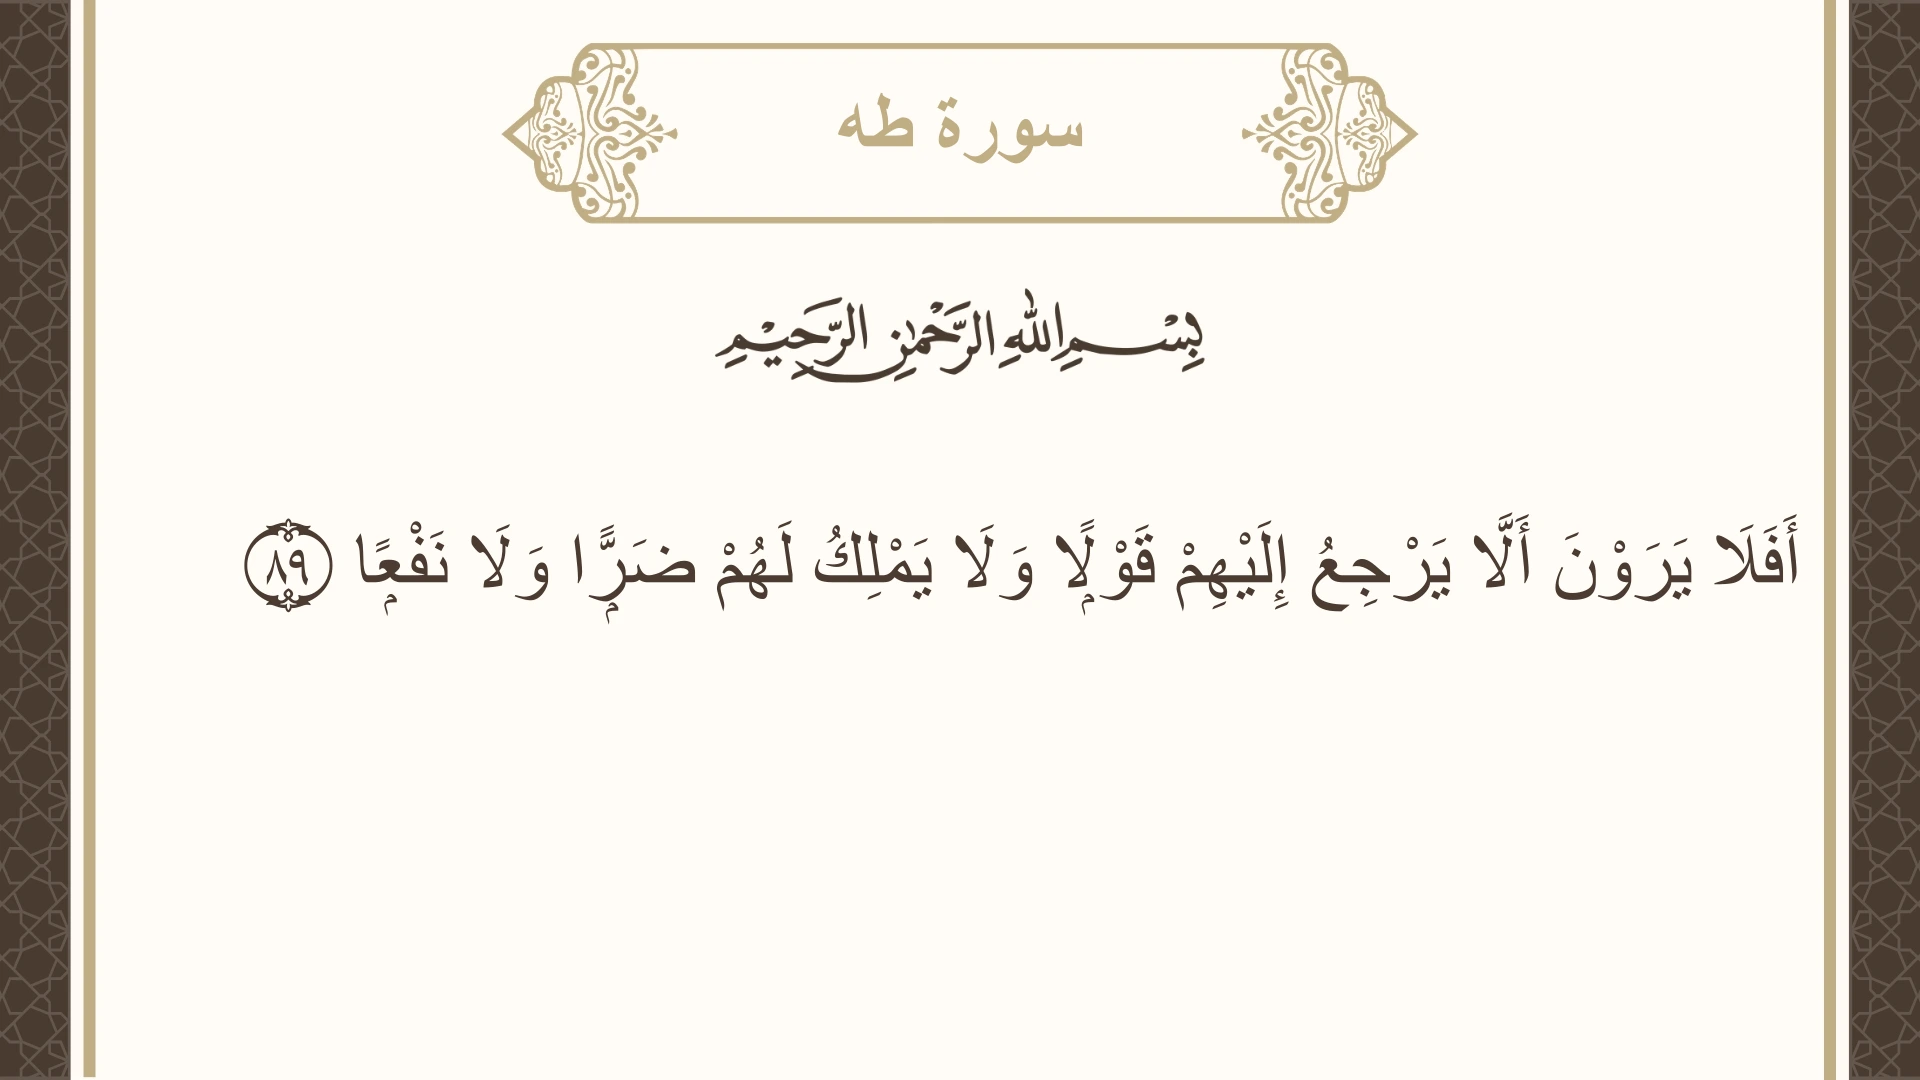 سورة طه
بِسْمِ اللهِ الرَّحْمٰنِ الرَّحِيْمِ
أَفَلَا يَرَوْنَ أَلَّا يَرْجِعُ إِلَيْهِمْ قَوْلًۭا وَلَا يَمْلِكُ لَهُمْ ضَرًّۭا وَلَا نَفْعًۭا ٨٩